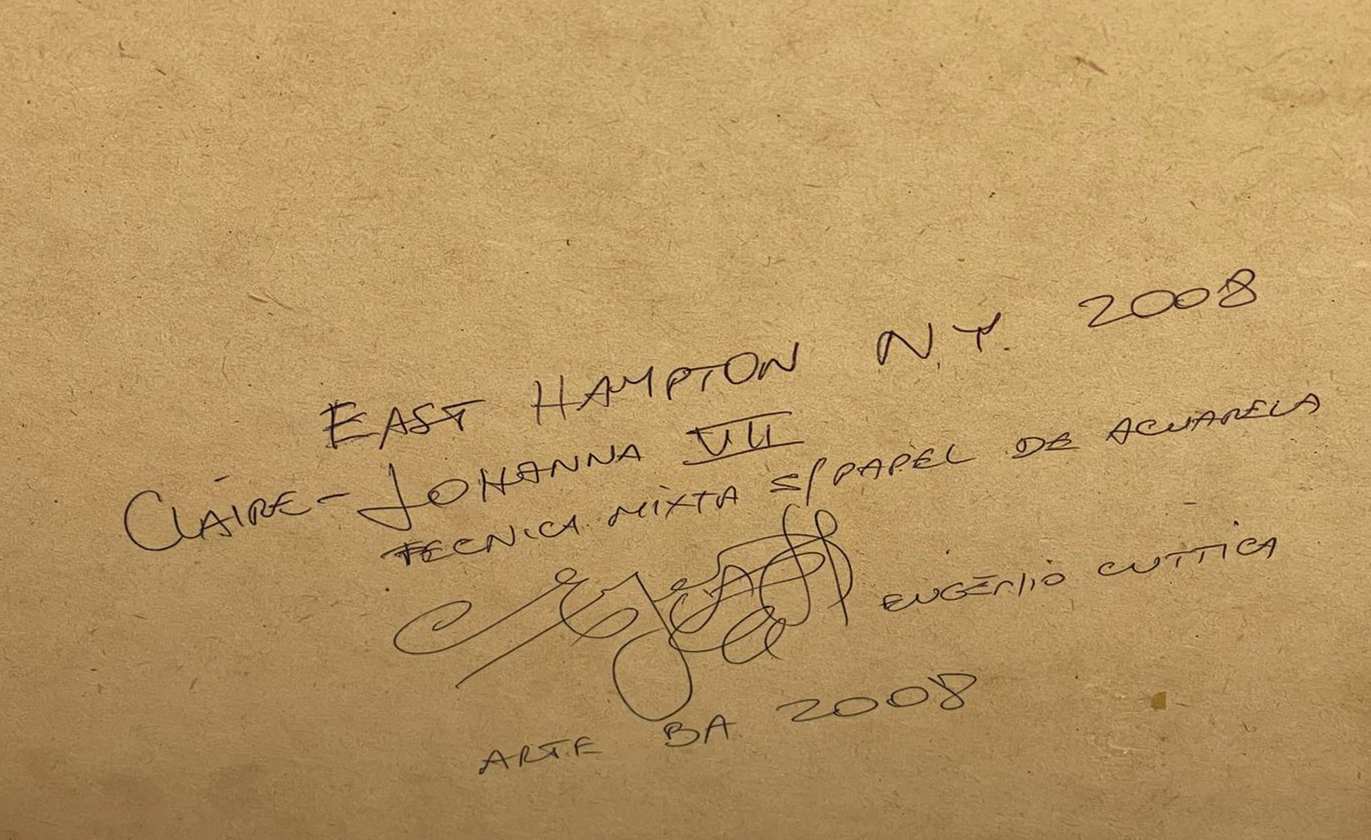 EAST HAMPTON N.Y. 2008
CLAIRE-JOHANNA VII
TECNICA MIXTA S/PAPEL DE ACUARELA
EUGENIO CUTTICA
ARTE BA 2008